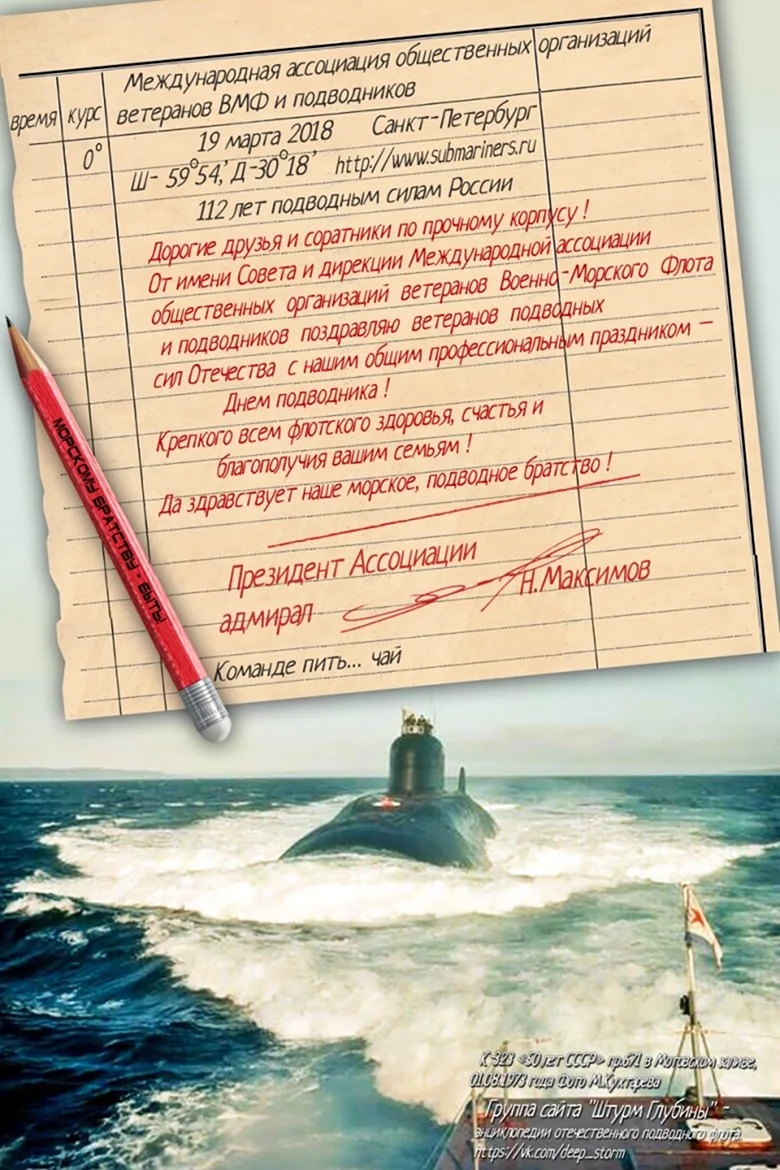 Международная ассоциация общественных организаций
ветеранов ВМФ и подводников
время курс
0° 19 марта 2018 Санкт-Петербург
Ш- 59°54,' Д-30°18' http://www.submariners.ru
112 лет подводным силам России
Дорогие друзья и соратники по прочному корпусу !
От имени Совета и дирекции Международной ассоциации
общественных организаций ветеранов Военно-Морского Флота
и подводников поздравляю ветеранов подводных
сил Отечества с нашим общим профессиональным праздником —
Днем подводника !
Крепкого всем флотского здоровья, счастья и
благополучия вашим семьям !
Да здравствует наше морское, подводное братство !
Президент Ассоциации
адмирал Н.Максимов
Команде пить... чай
МОРСКОМУ БРАТСТВУ - БЫТЬ!
К-323 «50 лет СССР» пр.671 в Мотовском заливе,
01.08.1973 года Фото М.Кухтарева
Группа сайта "Штурм Глубины" -
энциклопедии отечественного подводного флота.
https://vk.com/deep_storm